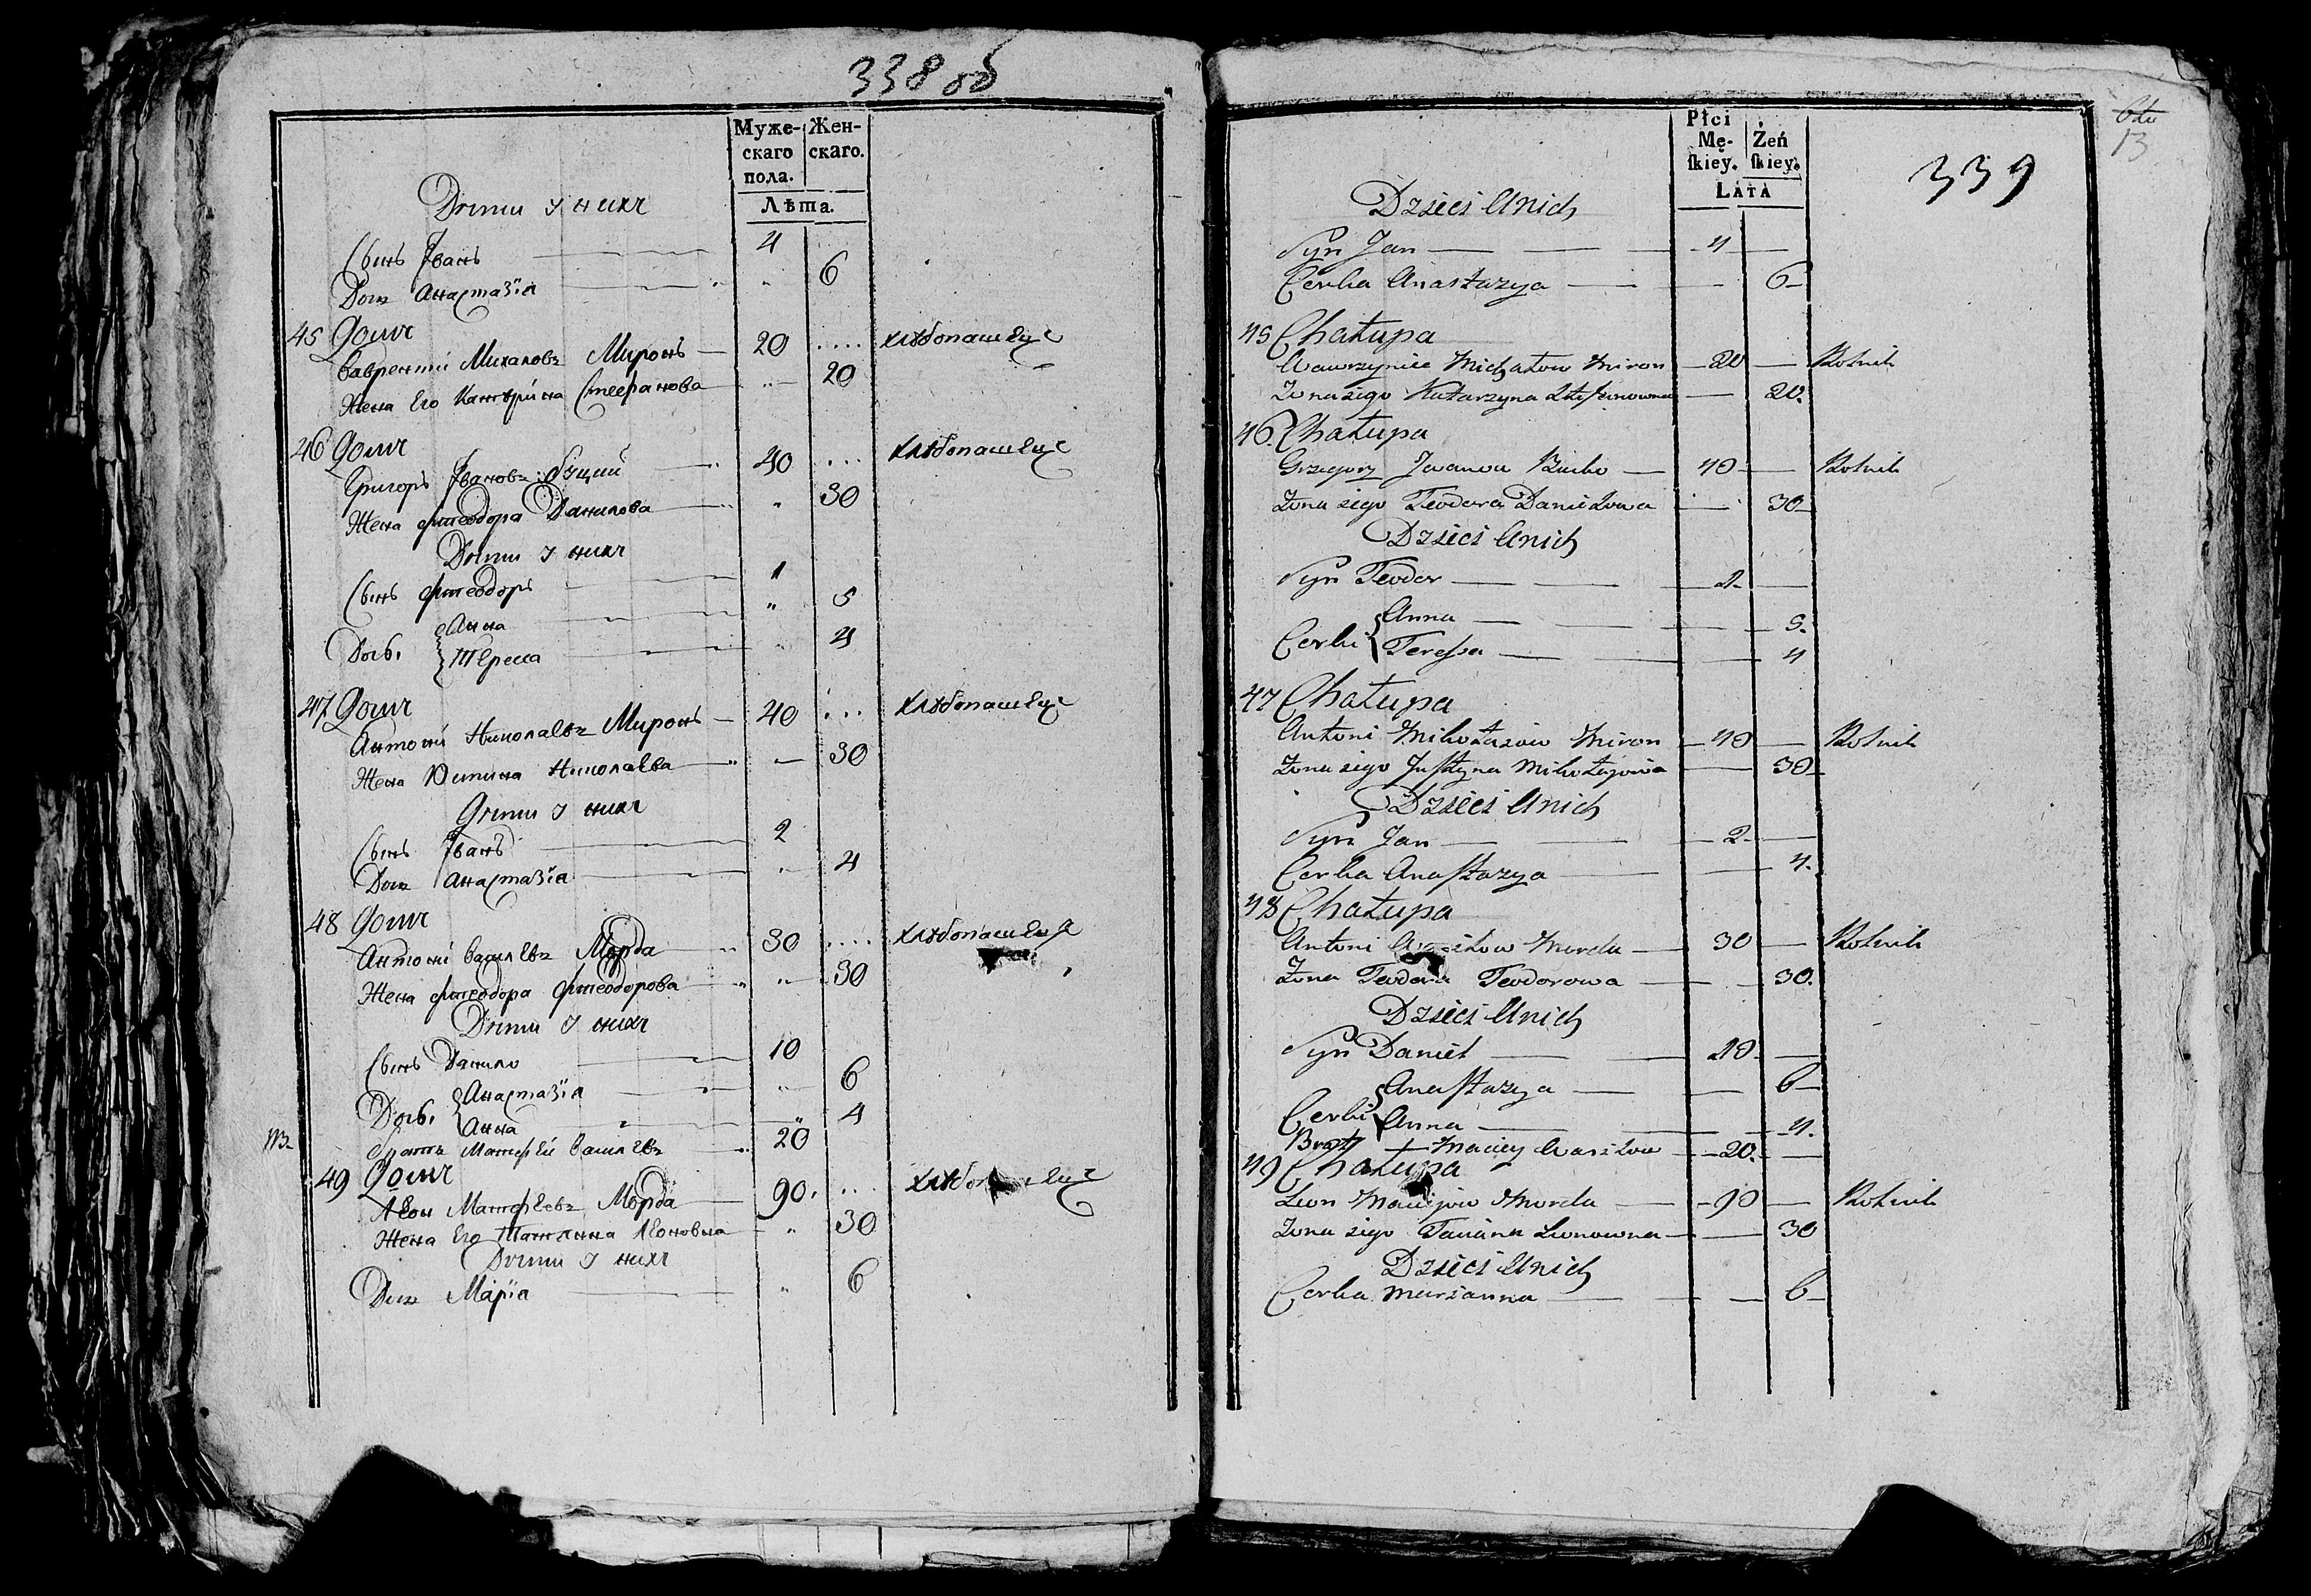 338 об
Муже-скаго пола. Жен-скаго.
Лѣта.
Дѣти у нихъ
Сынъ Іванъ 4
Дочь Анастазія 6
45 Домъ
Лаврентій Михаловъ Миронъ 20 .... хлѣбопашецъ
Жена Его Катѣрина Стефанова 20
46 Домъ
Григоръ Івановъ 40 ... хлѣбопашецъ
Жена Фтеодора Данилова 30
Дѣти у нихъ
Сынъ Фтеодоръ 1
Анна 5
Дочь. Тереса 4
47 Домъ
Антоній Николаевъ Миронъ 40 ... хлѣбопашецъ
Жена Юстина Николаева 30
Дѣти у нихъ
Сынъ Іванъ 2
Дочь Анастазія 4
48 Домъ
Антоній Василевъ Морда 30 .... хлѣбопашецъ
Жена Фтеодора Фтеодорова 30
Дѣти у нихъ
Сынъ Данило 10
Анастазія 6
Дочь. Анна 4
братъ Матфей Василевъ 20
49 Домъ
Леон Матфеевъ Морда 90. ...
Жена Его Татянна Леоновна 30
Дѣти у нихъ
Дочь Марія 6
13
339
Płci Mę-ſkiey. Żeń ſkiey.
LATA
Dzieci Unich
Syn Jan 4
Corka Anastazya 6
45 Chałupa
Wawrzyniec Michałow Miron 20 Rolnik
Żona iego Katarzyna Stefanowna 20.
46. Chałupa
Grzegorz Iwanow 40 Rolnik
Żona iego Teodora Daniełowa 30
Dzieci Unich
Syn Teodor 1
Anna 5.
Corki Teressa 4
47 Chałupa
Antoni Mikołaiow Miron 40 Rolnik
Żona iego Justyna Mikołajowa 30
Dzieci Unich
Syn Jan 2
Corka Anastazya 4.
48 Chałupa
Antoni Morda 30 Rolnik
Żona Teodora Teodorowa 30.
Dzieci Unich
Syn Danieł 10
Anastazya 6
Corki Anna 4.
Brat Maciey Wasilow 20.
49 Chałupa
Leon Macijow Morda 90 Rolnik
Żona iego Taciana Leonowna 30
Dzieci Unich
Corka Marianna 6